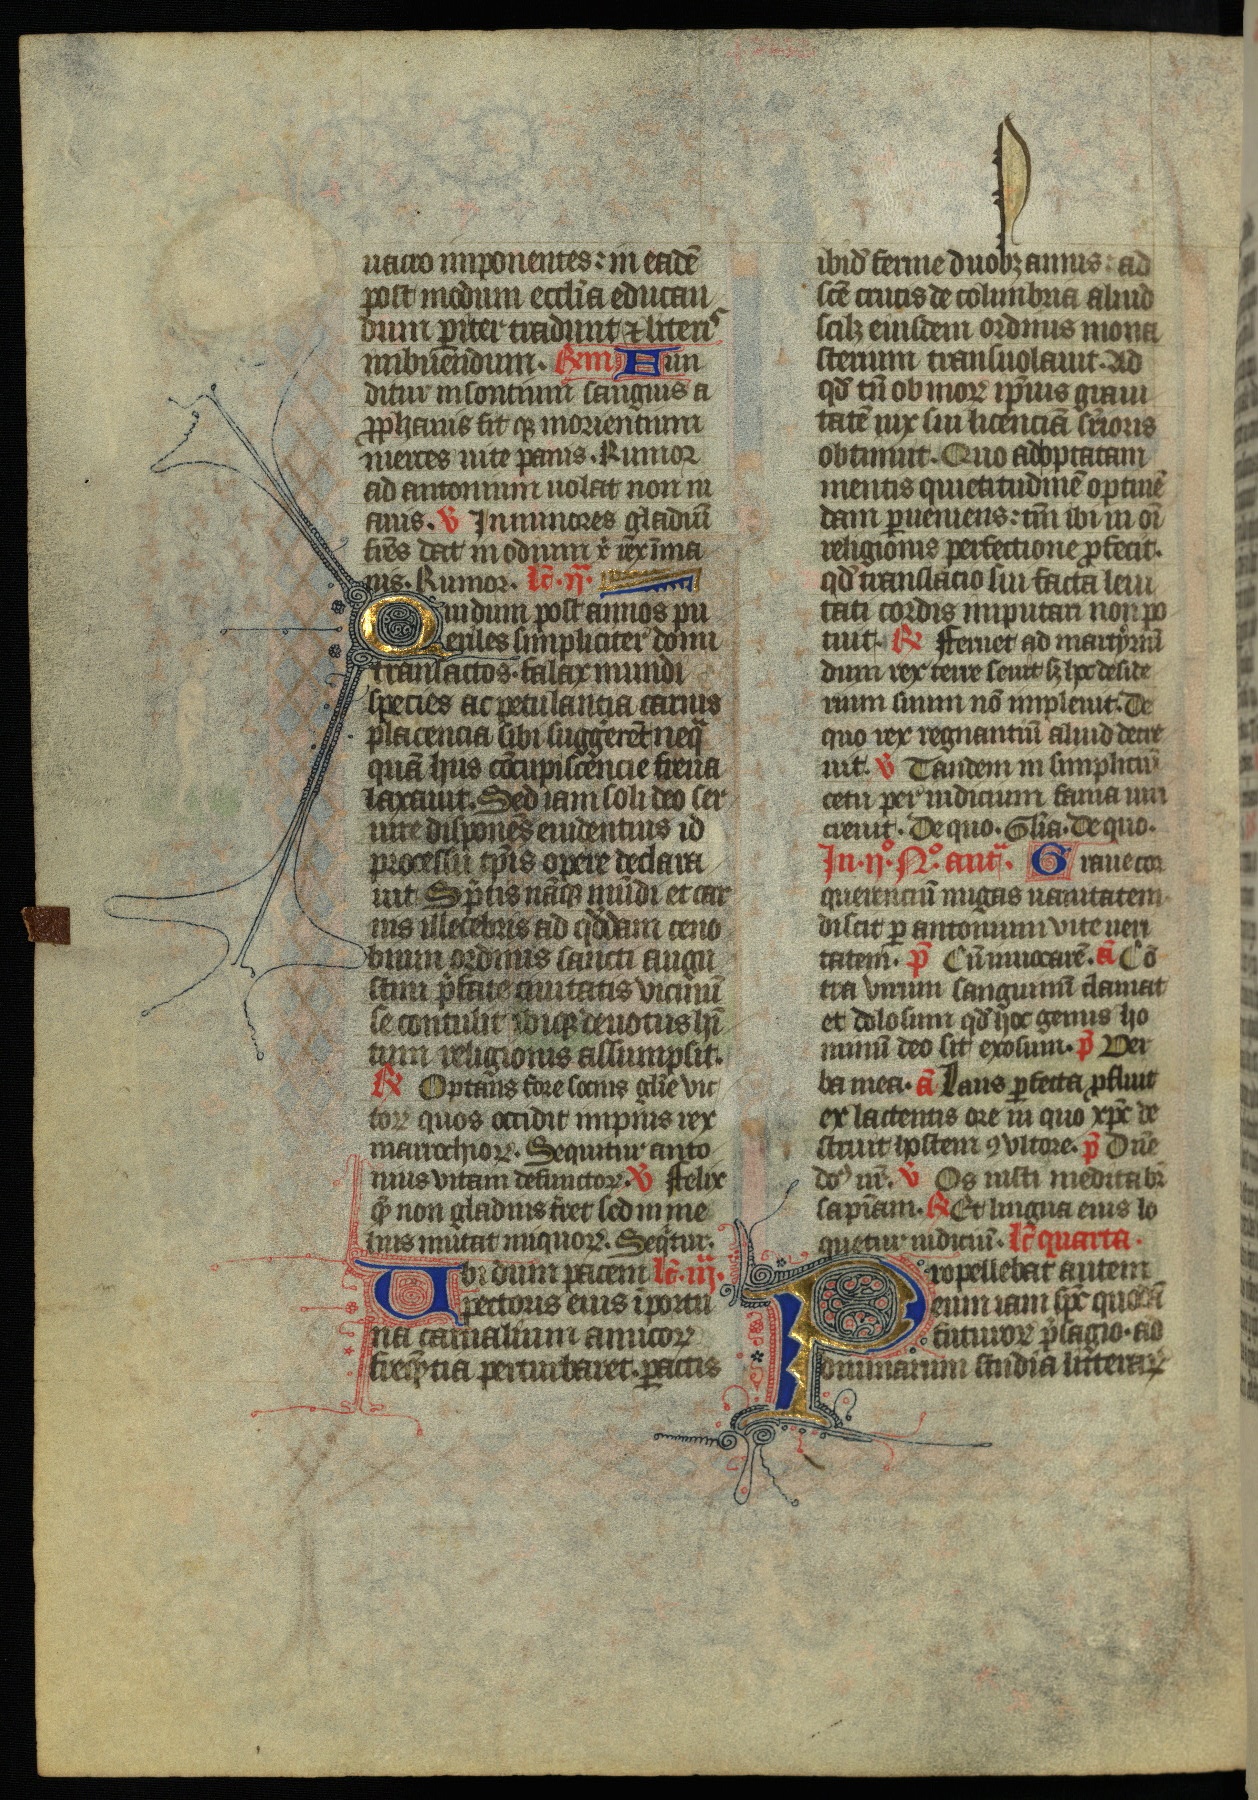 uatio imponentes: in eadē
post modum eccl̄ia educan
dum pr̄iter tradunt ⁊ literis
imbuendum. R̃m Fun
ditur insontium sangius a
pphanis fit qꝫ morientium
merces uite panis. Rumor
ad antonium uolat non in
anis. V̄ In minores gladiū
fr̄es dat in odium xp̄i rex ima
nis. Rumor. lc̄. ij.
Quidum post annos pu
eriles simpliciter domi
transactos. falax mundi
species ac petulantia carnis
placencia sibi suggeret neq̄
quā hiis cōcupiscencie frena
laxauit. Sed iam soli deo ser
uire disponēs euidentius id
processū tp̄is opere declara
uit. Sp̄tis nāqꝫ mūdi et car
nis illecebris ad qd̄dam ceno
bium ordinis sancti augu
stini p̄fate ciuitatis vicinū
se contulit ibiqꝫ deuotus hī
tum religionis assumpsit.
R̄ Optans fore socius gl̄ie vic
torꝝ quos occidit impius rex
marrochiorꝝ. Sequitur anto
nius vitam defunctorꝝ. V̄ Felix
qͥ non gladius feret sed in me
lius mutat iniquorꝝ. Seq̄tur.
Ubi dum pacem lc̄. iij.
pectoris eius īportu
na carnalium amicorꝝ
freq̄ntia perturbaret. pactis
ibid̄ ferme duobꝫ annis: ad
scē crucis de colimbria aliud
scilꝫ eiusdem ordinis mona
sterium transuolauit. Ad
qd̄ tn̄ ob morꝝ ip̄ius graui
tatē uix sui licenciā sr̄ioris
obtinuit. Quo adoptatam
mentis quietitudinē optinē
dam p̱ueniens: tn̄i ibi in oī
religionis perfectione p̱fecit.
qd̄ translacio sui facta leui
tati cordis imputari non po
tuit. R̄ Feruet ad martyriū
dum rex terre seuit sꝫ hoc deside
rium suum nō impleuit. De
quo rex regnantiū aliud decre
uit. V̄ Tandem in simpliciū
cetu per iudicium fama inn
creuit. De quo. Gl̄ia. De quo.
In. ij°. N°. ant̄. Graue cor
querenciū nugas uanitatem
discit p̱ antonium vite ueri
tatem. p̄s Cū inuocarē. ā Cō
tra virum sanguinū clamat
et dolosum qd̄ hoc genus ho
minū deo sit exosum. p̄s Ver
ba mea. ā Laus p̱fecta p̱fluit
ex lactentis ore in quo xp̄c de
struit hostem ⁊ vltore. p̄s Dn̄e
do⁹ nr̄. V̄ Os iusti meditabr̄
sapīam. R̄ Et lingua eius lo
quetur iudiciū. lc̄ quarta.
Propellebat autem
eum iam sp̄c quodā
futurorꝝ p̄sagio. ad
ominarum studia litterarꝝ